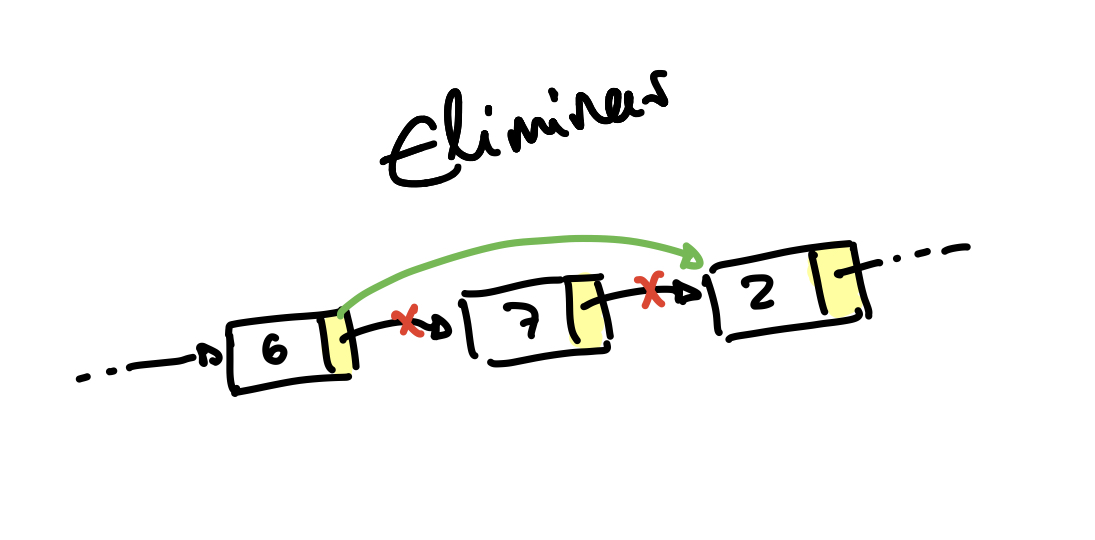 Eliminar
6 7 2